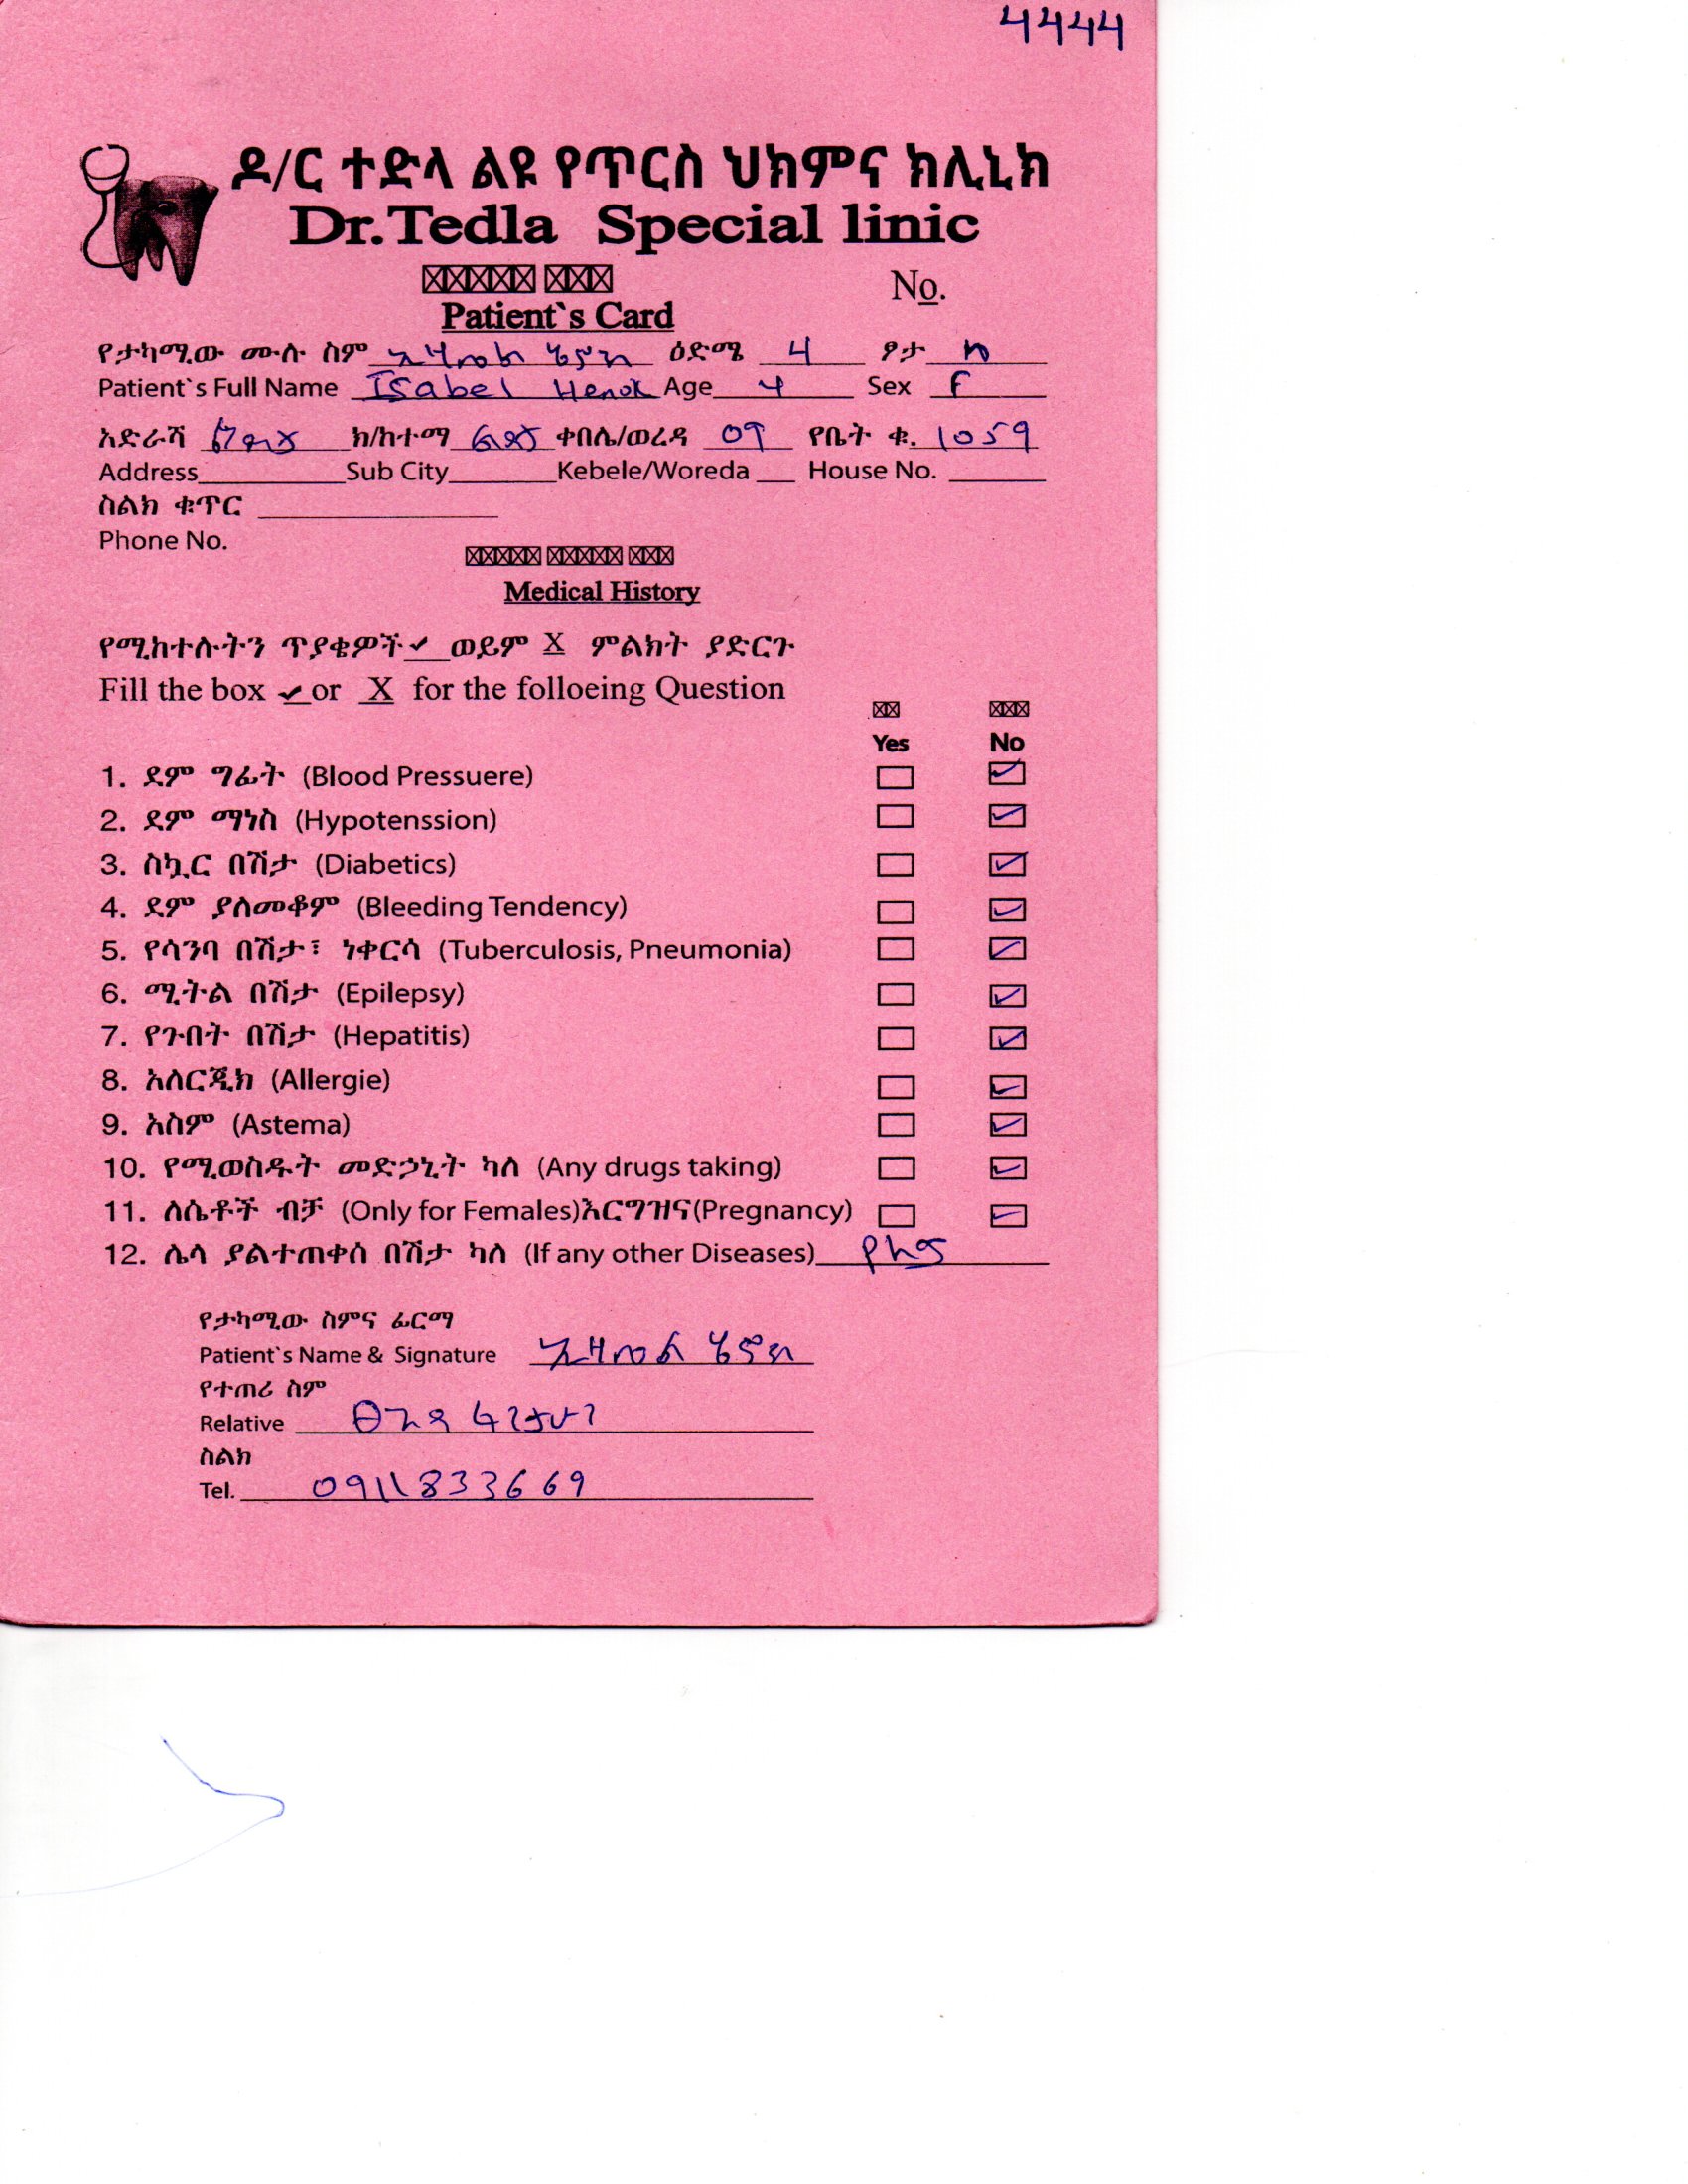 4444
ዶ/ር ተድላ ልዩ የጥርስ ህክምና ክሊኒክ
Dr.Tedla Special linic
No.
Patient`s Card
የታካሚው ሙሉ ስም ኢዛቤል ሄኖክ ዕድሜ 4 ፆታ ሴ
Patient`s Full Name Isabel Henok Age 4 Sex F
አድራሻ ክ/ከተማ ቀበሌ/ወረዳ 09 የቤት ቁ. 1059
Address Sub City Kebele/Woreda House No.
ስልክ ቁጥር
Phone No.
Medical History
የሚከተሉትን ጥያቄዎች ✔ ወይም X ምልክት ያድርጉ
Fill the box ✔ or X for the folloeing Question
Yes No
1. ደም ግፊት (Blood Pressuere) ✓
2. ደም ማነስ (Hypotenssion) ✓
3. ስኳር በሽታ (Diabetics) ✓
4. ደም ያለመቆም (Bleeding Tendency) ✓
5. የሳንባ በሽታ፣ ነቀርሳ (Tuberculosis, Pneumonia) ✓
6. ሚትል በሽታ (Epilepsy) ✓
7. የጉበት በሽታ (Hepatitis) ✓
8. አለርጂክ (Allergie) ✓
9. አስም (Astema) ✓
10. የሚወስዱት መድኃኒት ካለ (Any drugs taking) ✓
11. ለሴቶች ብቻ (Only for Females)እርግዝና(Pregnancy) ✓
12. ሌላ ያልተጠቀሰ በሽታ ካለ (If any other Diseases) የለም
የታካሚው ስምና ፊርማ
Patient`s Name & Signature ኢዛቤል ሄኖክ
የተጠሪ ስም
Relative
ስልክ
Tel. 0911833669